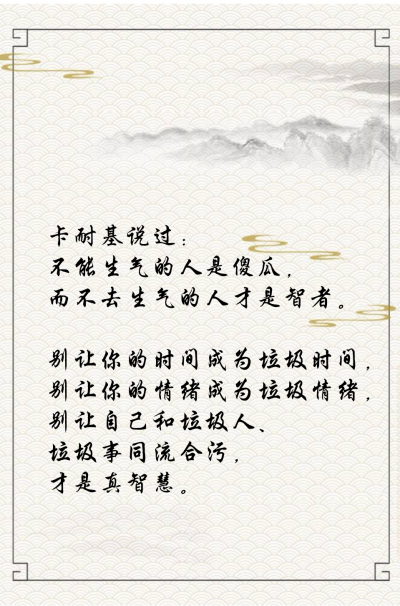 卡耐基说过：
不能生气的人是傻瓜，
而不去生气的人才是智者。
别让你的时间成为垃圾时间，
别让你的情绪成为垃圾情绪，
别让自己和垃圾人、
垃圾事同流合污，
才是真智慧。